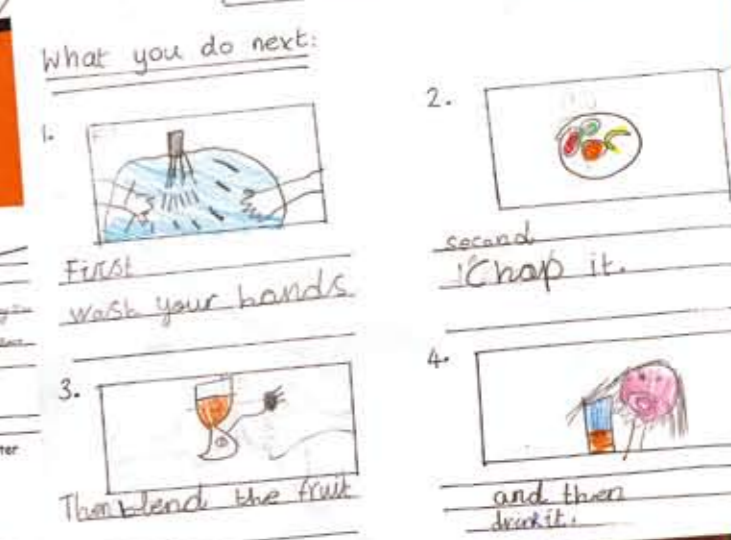 What you do next:
1.
First
wash your hands
2.
second
Chop it.
3.
Then blend the fruit
4.
and then
drink it.
ter